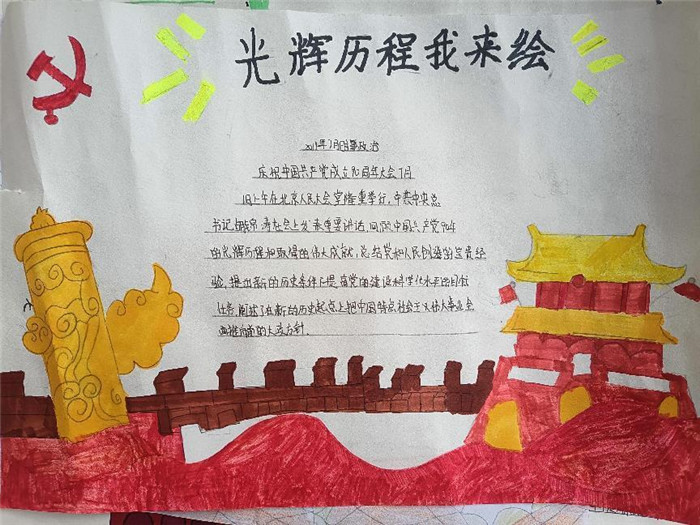 光辉历程我来绘
2011年7月时事政治
庆祝中国共产党成立90周年大会7月
1日上午在北京人民大会堂隆重举行,中共中央总
书记、胡锦涛在会上发表重要讲话,回顾中国共产党90年
的光辉历程和取得的伟大成就,总结党和人民创造的宝贵经
验,提出新的历史条件下提高党的建设科学化水平的目标
任务,阐述了在新的历史起点上把中国特色社会主义伟大事业全
面推向前的大政方针.